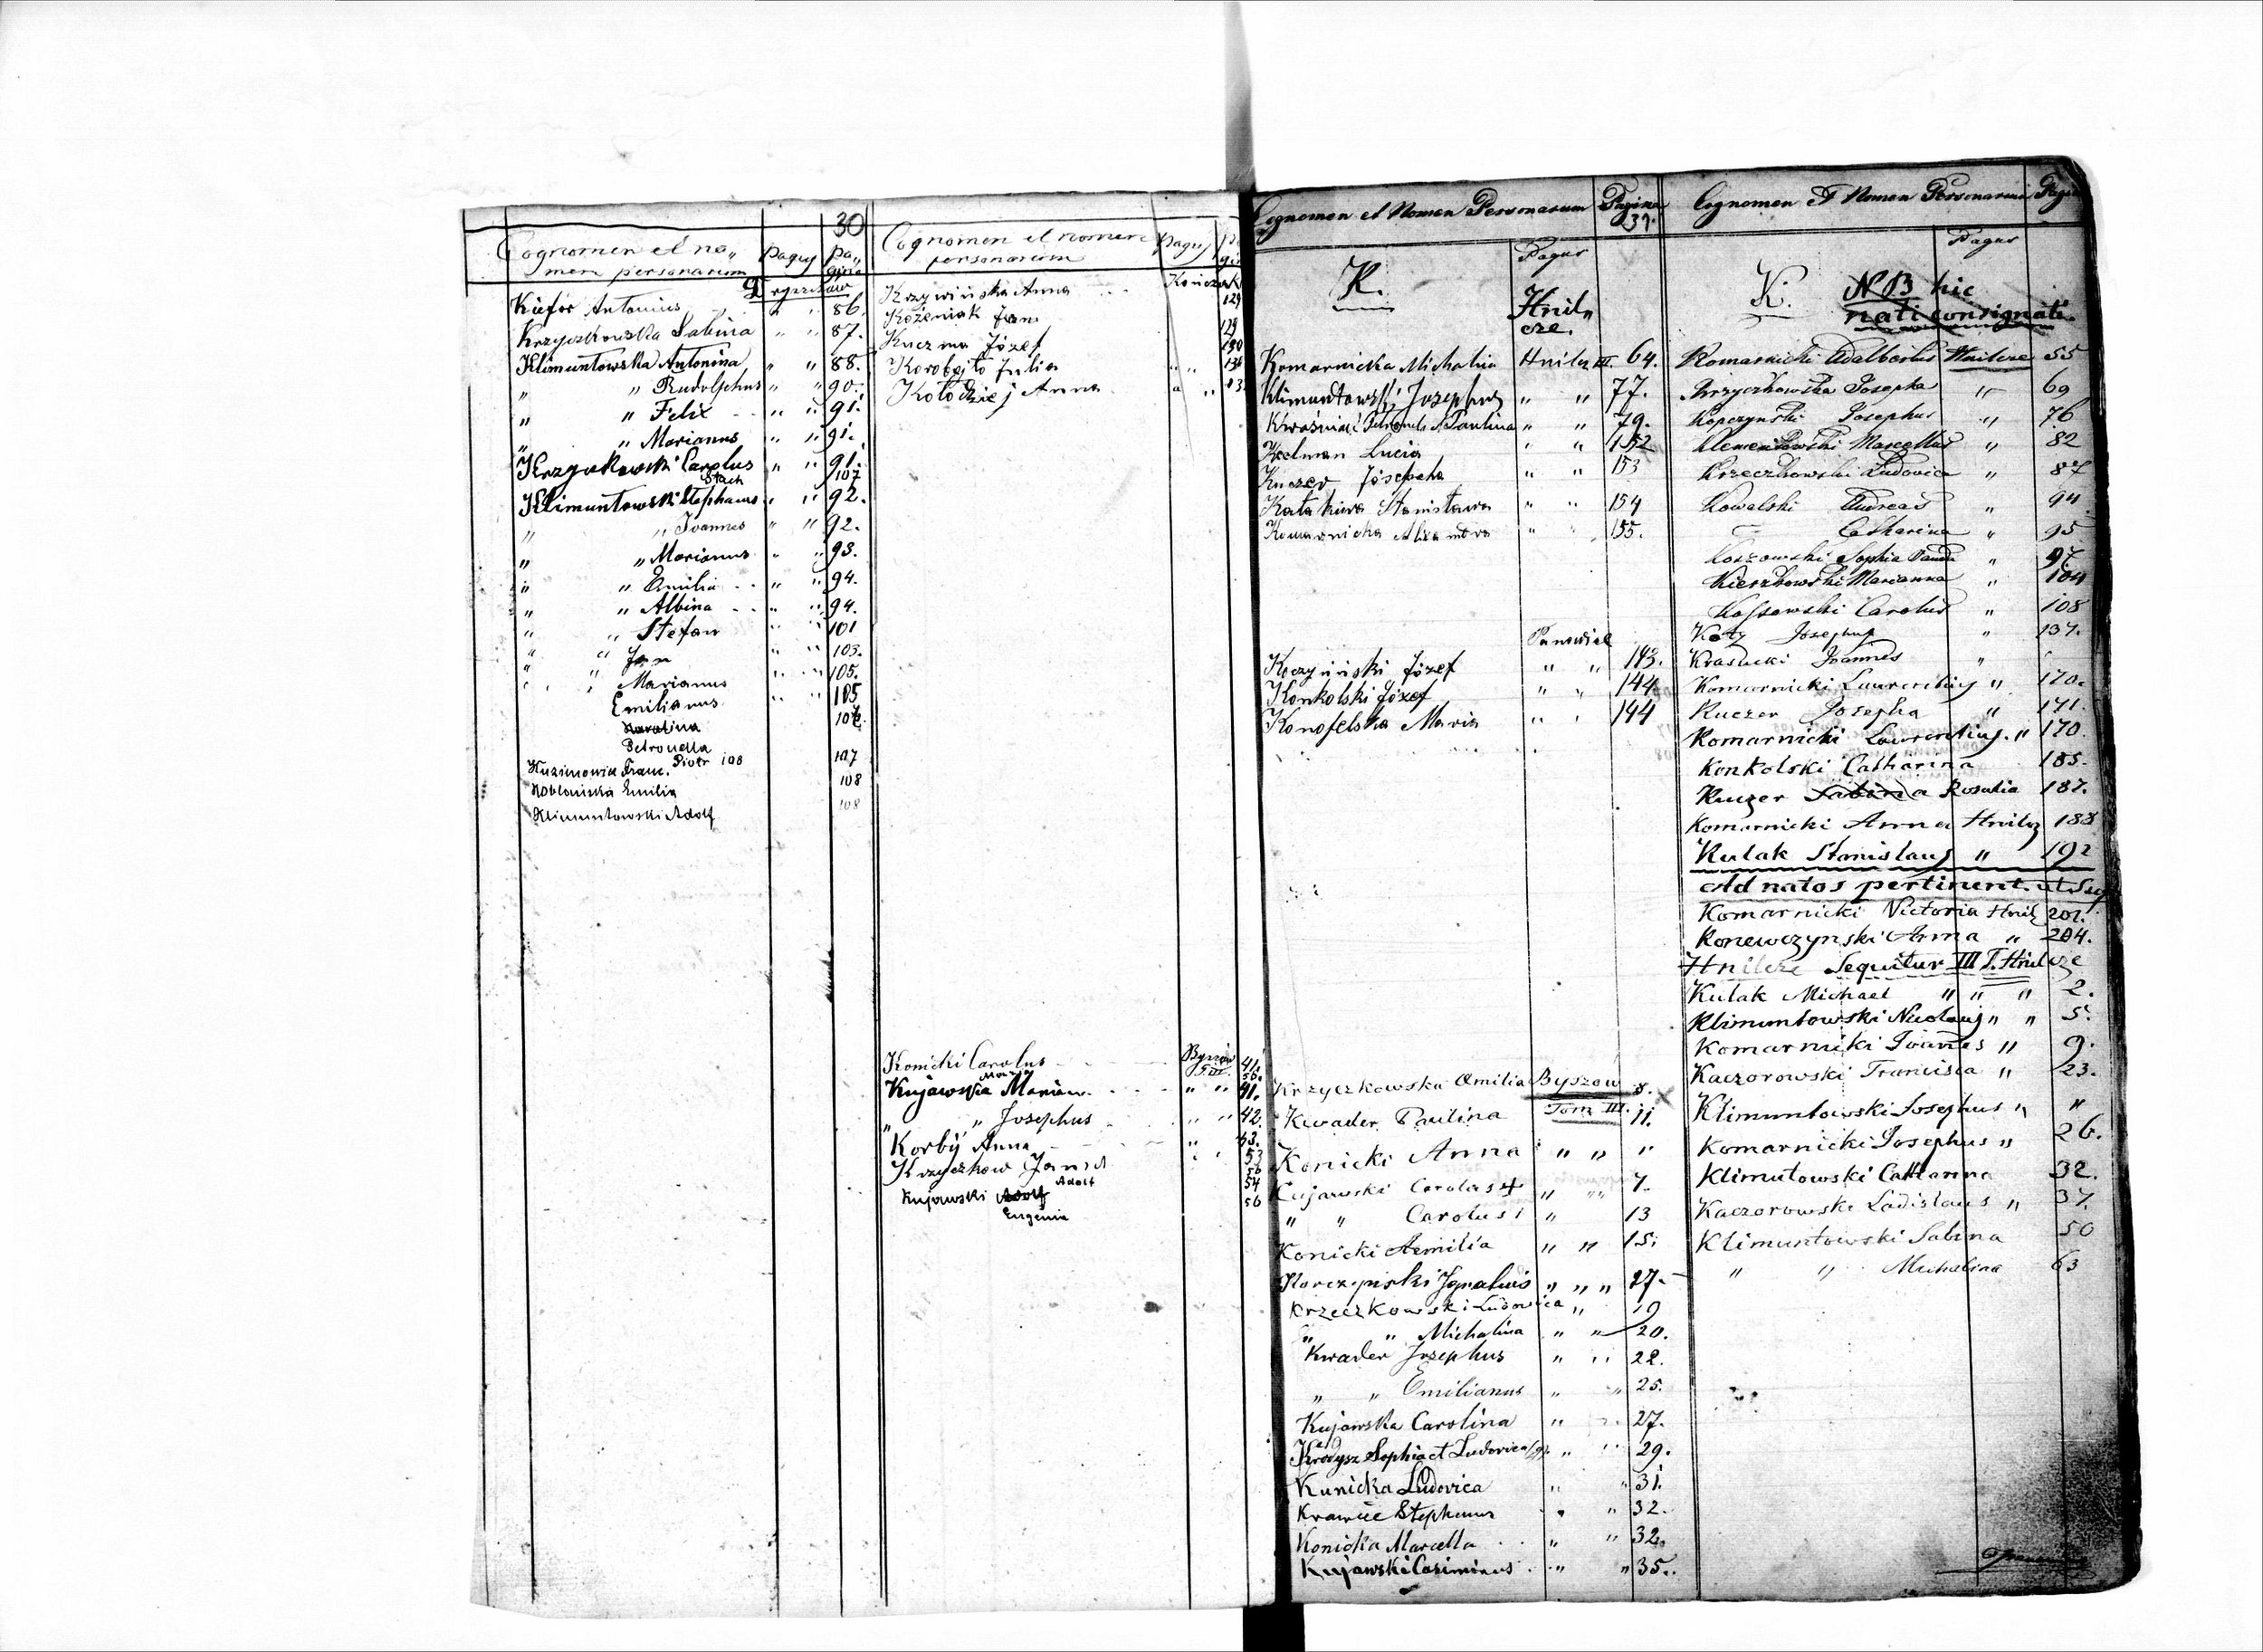 30
Cognomen et no„ Pagus Pa„
men personarum gina
Kiefor Antonius „ „ 86.
Krzyczkowska Sabina „ „ 87.
Klimuntowska Antonina „ „ 88.
„ „ Rudolphus „ „ 90.
„ „ Felix „ „ 91.
„ „ Marianus „ „ 91.
Krzyczkowski Carolus „ „ 91.
107
Klimuntowski Stephanus „ „ 92.
„ „ Joannes „ „ 92.
„ „ Marianus „ „ 93.
„ „ Emilia „ „ 94.
„ „ Albina „ „ 94.
„ „ Stefan „ „ 101
„ „ Jan „ „ 103.
„ „ Marianus „ „ 105.
Emilianus „ „ 105
Karolina
Petronella
Piotr 108 107
Franc. 108
Emilia 108
Klimuntowski Adolf
Cognomen et nomen Pagus
personarum
Krzywińska Anna 129
Koźeniak Jan 129
Kuczma Józef 130
Korobajto Julia
Kołodziej Anna
Konicki Carolus 41.
Kujawska Mariam „ „ 41.
„ „ Josephus „ „ 42.
Korbÿ Anna „ 43.
Krzyczkow 53
Adolf
Kujawski Adolf 56
Eugenia
Cognomen et Nomen Personarum Pagina
31.
K. Pagus
Hnil„
cze.
Komarnicka Michalina Hnilcz III. 64.
Klimuntowski Josephus „ „ 77.
Paulina „ „ 79.
Kelman Lucia „ „ 152
Kuczer Józefa „ „ 153
Stanisława „ „ 154
Komarnicka „ „ 155.
Koczyński Józef „ „ 143.
Konkolski Józef „ „ 144
Konofelska Maria „ „ 144
Krzyczkowska Emilia Byszow 8.
Kwader Paulina Tom III. 11.
Konicki Anna „ „ „
Kujawski Carolus „ „ 7.
„ „ Carolus „ 13
Konicki Aemilia „ „ 15.
Ignatius „ „ „ 27.
Krzeczkowski Ludowica „ 19
„ „ Michalina „ „ 20.
Kwader Josephus „ „ 22.
„ „ Emilianus „ „ 25.
Kujawska Carolina „ „ 27.
Sophia et Ludovica „ „ 29.
Kunicka Ludovica „ „ 31.
Krawiec Stephanus „ „ 32.
Konicka Marcella „ „ 32.
Kujawski Casimirus „ „ 35.
Cognomen et Nomen Personarum
Pagus
K. NB hic
nati consignati.
Komarnicki Adalbertus Hnilcze 55
Krzyczkowska Josepha „ 69
Kopczynski Josephus „ 76
Marcellus „ 82
Krzeczkowski Ludovica „ 87
Kowalski Andreas „ 94
Catharina „ 95
Sophia „ 97.
Kieszkowski Marianna „ 104
Kossowski Carolus „ 108
Josephus „ 137.
Krasucki Joannes „
Komarnicki Laurentius „ 170.
Kuczer Josepha „ 171.
Komarnicki Laurentius „ 170
Konkolski Catharina 185.
Kuczer Sabina Rosalia 187.
Komarnicki Anna Hnilcz 188
Kulak Stanislaus „ 192
Ad natos pertinent ut
Komarnicki Victoria Hnilcz 201.
Konewczynski Anna „ 204.
Hnilcze Sequitur III T. Hnilcze
Kulak Michael „ „ „ 2.
Klimuntowski Nicolaus „ „ 5.
Komarnicki Joannes „ 9.
Kaczorowski Francisca „ 23.
Klimuntowski Josephus „ „
Komarnicki Josephus „ 26.
Klimutowski Catharina 32.
Kaczorowski Ladislaus „ 37.
Klimuntowski Sabina 50
„ „ Michalina 63